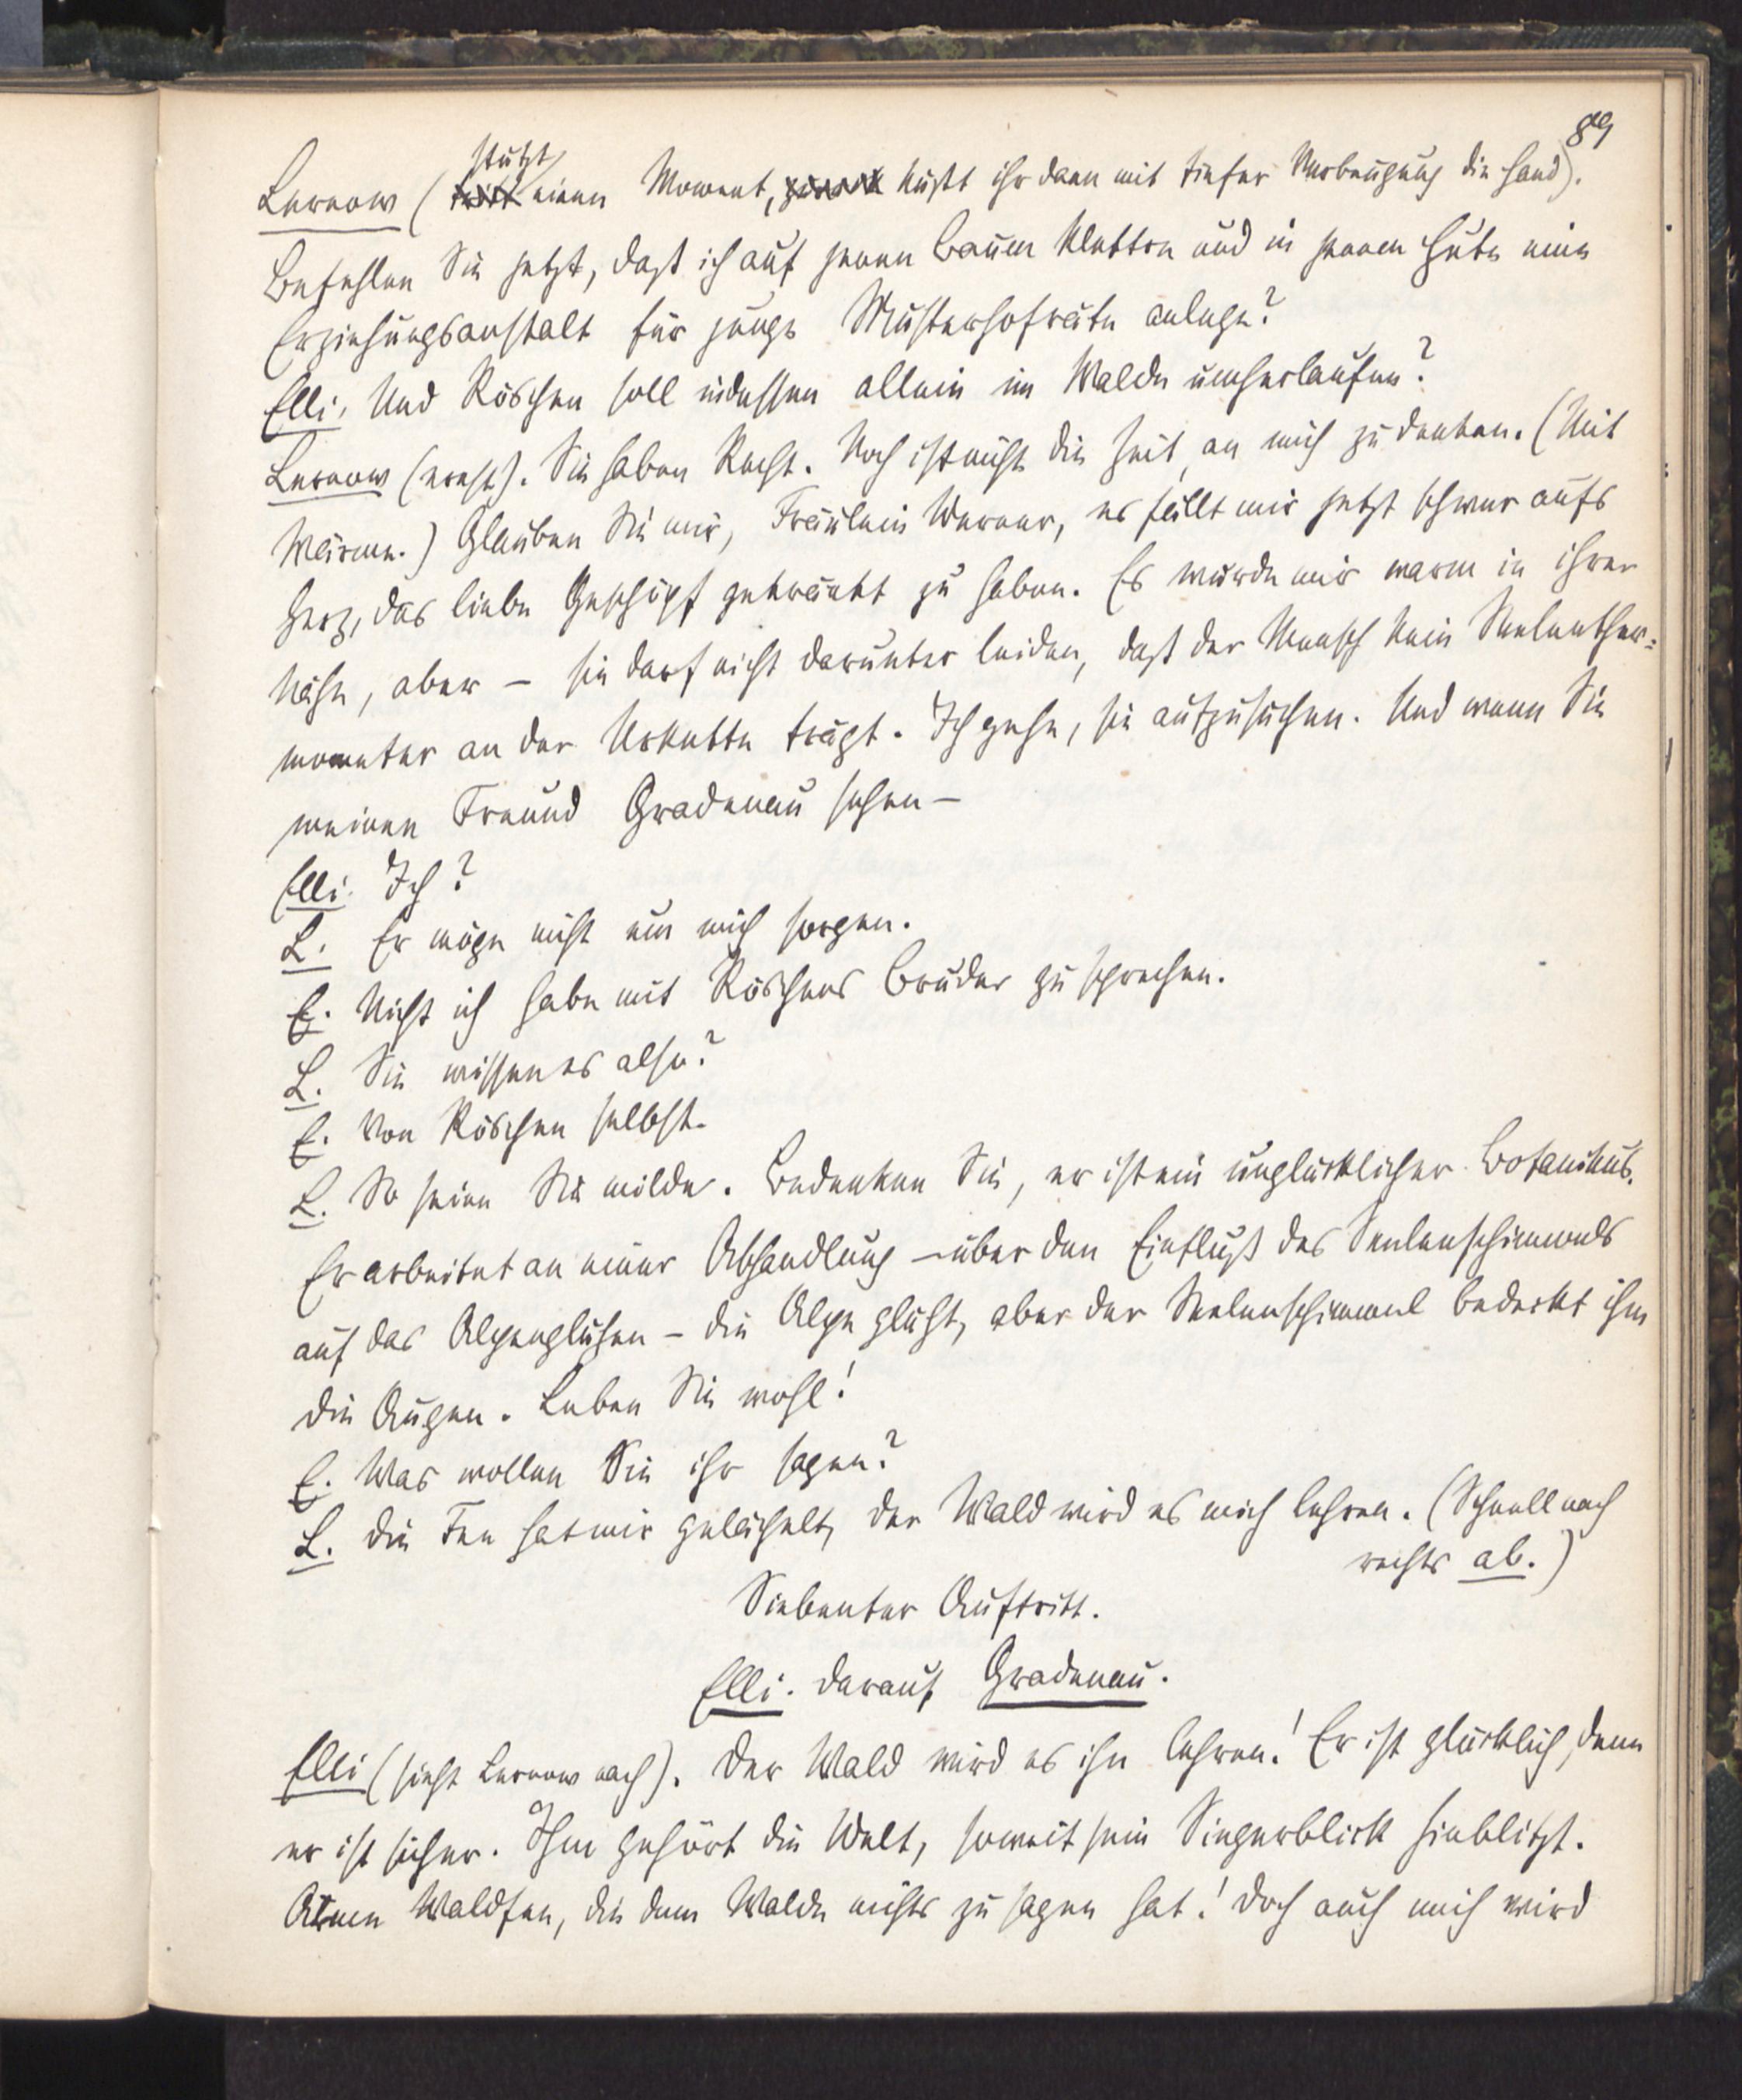 89
stutzt
Lernow (tritt einen Moment, zurück küßt ihr dann mit tiefer Verbeugung die Hand).
Befehlen Sie jetzt, daß ich auf jenen Baum klettre und in jenem Hute eine
Erziehungsanstalt für junge Musterhofräte anlege?
Elli. Und Röschen soll indessen allein im Walde umherlaufen?
Lernow (ernst). Sie haben Recht. Noch ist nicht die Zeit, an mich zu denken. (Mit
Wärme.) Glauben Sie mir, Fräulein Werner, es fällt mir jetzt schwer aufs
Herz, das liebe Geschöpf gekränkt zu haben. Es wurde mir warm in ihrer
Nähe, aber – sie darf nicht darunter leiden, daß der Mensch kein Seelenther-
mometer an der Uhrkette trägt. Ich gehe, sie aufzusuchen. Und wenn Sie
meinen Freund Gradenau sehen –
Elli. Ich?
L. Er möge nicht um mich sorgen.
E. Nicht ich habe mit Röschens Bruder zu sprechen.
L. Sie wissen es also?
E. Von Röschen selbst.
L. So seien Sie milde. Bedenken Sie, er ist ein unglücklicher Botanikus.
Er arbeitet an einer Abhandlung – über den Einfluß des Seelenschimmels
auf das Alpenglühen – die Alpe glüht, aber der Seelenschimmel bedeckt ihm
die Augen. Leben Sie wohl!
E. Was wollen Sie ihr sagen?
L. Die Fee hat mir gelächelt, der Wald wird es mich lehren. (Schnell nach
rechts ab.)
Siebenter Auftritt.
Elli. Darauf Gradenau.
Elli (sieht Lernow nach). Der Wald wird es ihn lehren! Er ist glücklich, denn
er ist sicher. Ihm gehört die Welt, soweit sein Siegerblick hinblitzt.
Arme Waldfee, die dem Walde nichts zu sagen hat! Doch auch mich wird